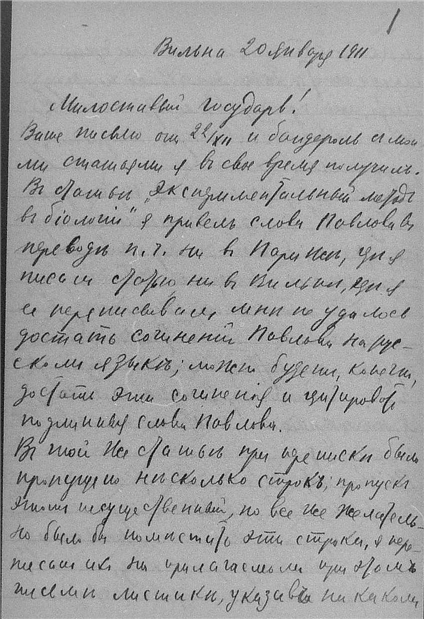 1
Вильна 20 января 1911
Милостивый государь!
Ваше письмо от 22/XII и бандероль с мои
ми статьями я въ свое время получилъ.
Въ статьѣ „Экспериментальный методъ
въ біологіи" я привелъ слова Павлова въ
переводѣ п. ч. ни въ Парижѣ, гдѣ я
писалъ статью ни въ Вильнѣ, гдѣ я
ее переписывалъ мнѣ не удалось
достать сочиненій Павлова на рус-
скомъ языкѣ; можно будетъ, конечно,
достать эти сочиненія и цитировать
подлинныя слова Павлова.
Въ той же статьѣ при переписки было
пропущено нѣсколько строкъ; пропускъ
этотъ несущественный, но все же желатель-
но было бы помѣстить эти строки, я пере-
писалъ ихъ на прилагаемомъ при этомъ
письмѣ листкѣ, указавъ на какой